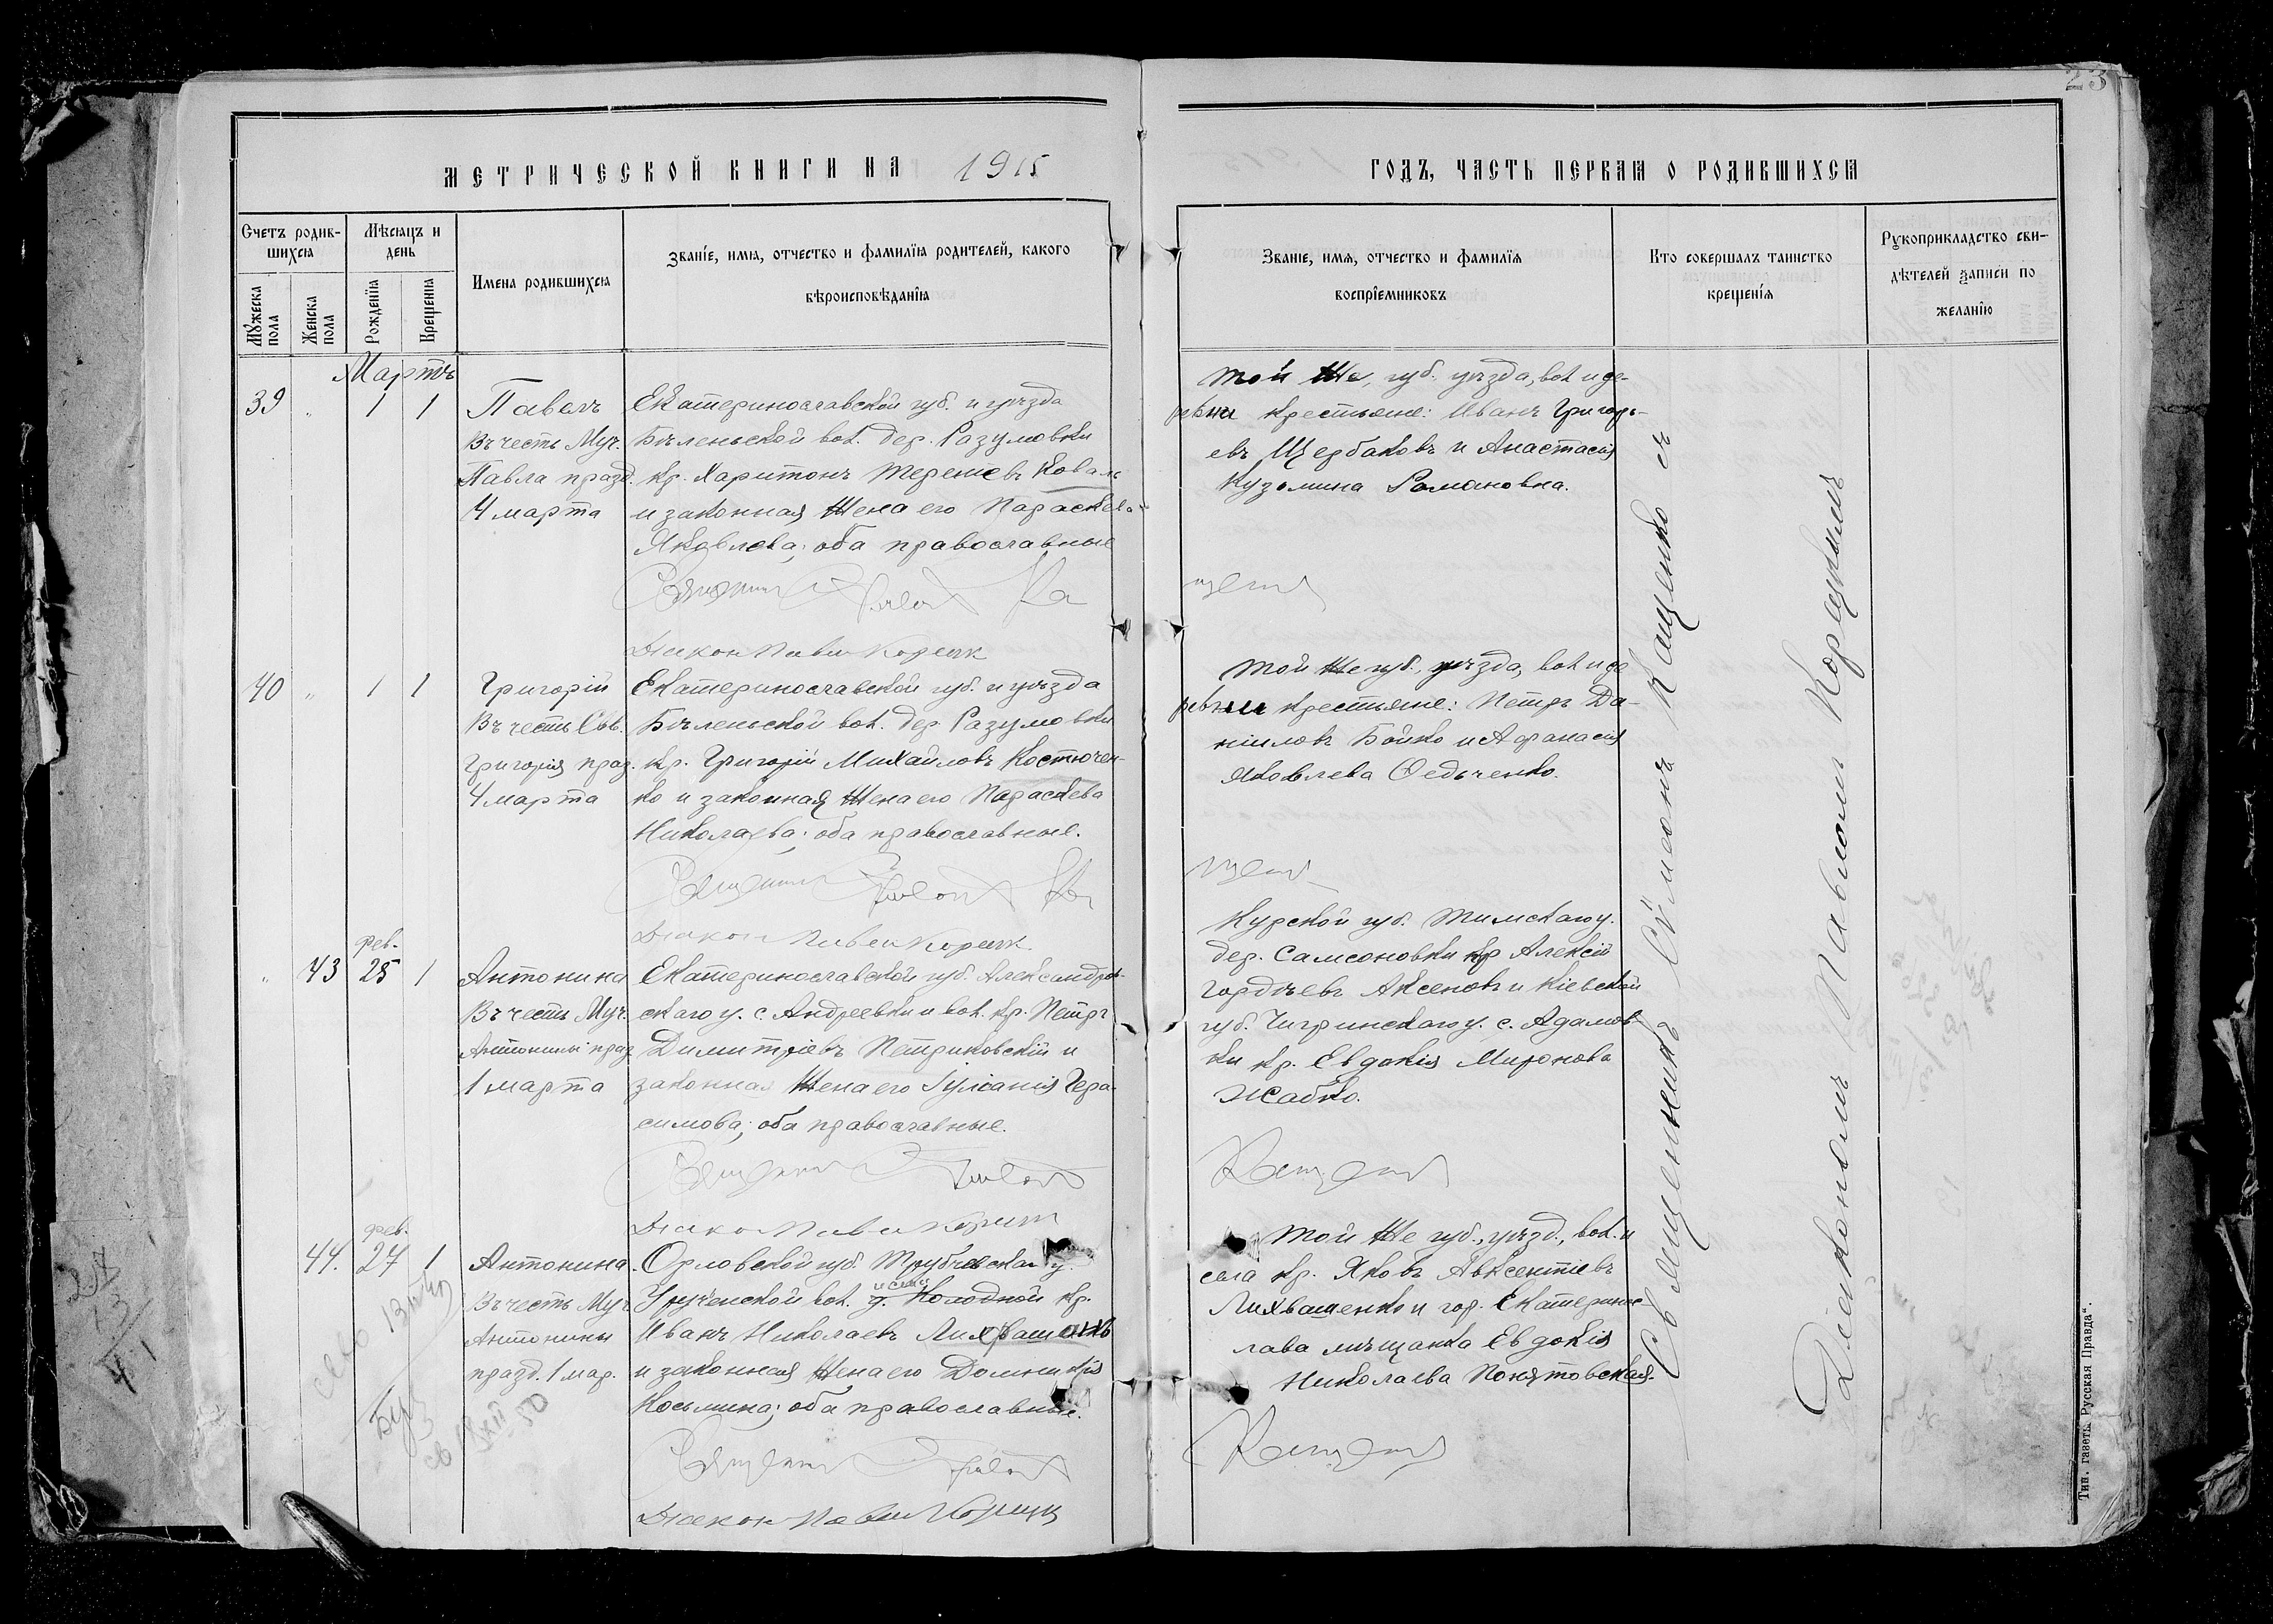 23
МЕТРИЧЕСКОЙ КНИГИ НА 1915
ГОДЪ, ЧАСТЬ ПЕРВАЯ О РОДИВШИХСЯ
Счетъ родив-
шихся
Мѣсяцъ и
день
Мужеска
пола
Женска
пола
Рожденїя
Крещенїя
Имена родившихся
Званїе, имя, отчество и фамилїя родителей, какого
вѣроисповѣданїя
Званїе, имя, отчество и фамилїя
воспрїемниковъ
Кто совершалъ таинство
крещенїя
Рукоприкладство сви-
дѣтелей записи по
желанїю
Мартъ
39 " 1 1
Павелъ
Въ честь Муч.
Павла празд.
4 марта
Екатеринославской губ. и уѣзда
Бѣленьской вол. дер. Разумовки
кр. Харитонъ Терентіевъ Коваль
и законная жена его Параскева
Яковлева; оба православные
Діаконъ Павелъ Корецк
той же губ. уѣзда, вол. и де-
ревни крестьяне: Иванъ Григорь-
евъ Щербаковъ и Анастасія
Кузьмина Романовна.
40 " 1 1
Григорій
Въ честь Св.
Григорія праз.
4 марта
Екатеринославской губ. и уѣзда
Бѣленьской вол. дер. Разумовки
кр. Григорій Михайловъ Костючен-
ко и законная жена его Параскева
Николаева; оба православные.
Діаконъ Павелъ Корецк.
той же губ., уѣзда, вол. и де
ревни крестьяне: Петръ Да-
ніиловъ Бойко и Афанасія
Яковлева Федченко.
" 43
фев.
25 1
Антонина
Въ честь Муч.
Антонины праз
1 марта
Екатеринославской губ. Александров-
скаго у. с. Андреевки и вол. кр. Петръ
Димитріевъ Петриковскій и
законная жена его Іуліанія Гера-
симова; оба православные.
Діаконъ Павелъ Корецк
Курской губ. Тимскаго у.
дер. Самсоновки кр Алексій
Гордѣевъ Аксеновъ и Кіевской
губ. Чигринскаго у. с. Адамов-
ки кр. Евдокія Миронова
Жабко.
44.
фев.
27 1
Антонина.
Въ честь Муч
Антонины
празд. 1 мар.
Орловской губ. Трубчевскаго у.
вол. д. Холодной кр.
Иванъ Николаевъ
и законная жена его Домникія
Косьмина; оба православные.
Діаконъ Павелъ Корецк
той же губ., уѣзд., вол. и
села кр. Яковъ Авксентіевъ
Лихвашенко и гор. Екатерино-
слава мѣщанка Евдокія
Николаева Понятовская.
Священникъ Сѵмеонъ Кащенко съ
Діакономъ Павломъ Корецкимъ
Тип. газеты „Русская Правда“.